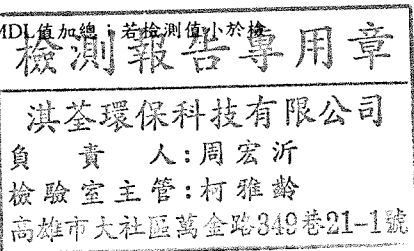 MDL值加總；若檢測值小於檢
檢測報告專用章
淇荃環保科技有限公司
負責人:周宏沂
檢驗室主管:柯雅齡
高雄市大社區萬金路349巷21-1號